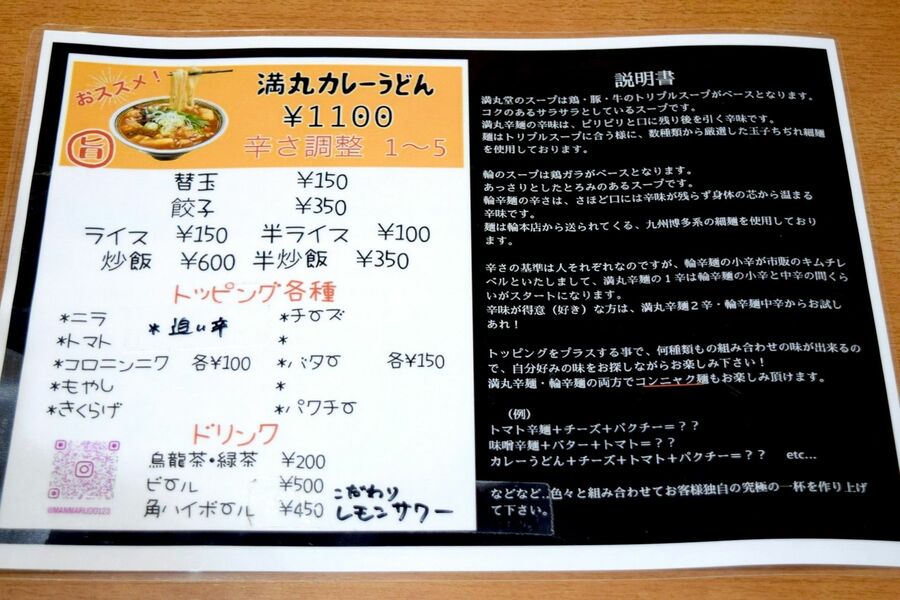 おススメ！
満丸カレーうどん
¥1100
辛さ調整 1～5
旨
替玉 ¥150
餃子 ¥350
ライス ¥150 半ライス ¥100
炒飯 ¥600 半炒飯 ¥350
トッピング各種
*ニラ
*トマト
*コロニンニク 各¥100
*もやし
*きくらげ
*追い辛
*チーズ
*
*バター 各¥150
*
*パクチー
ドリンク
烏龍茶・緑茶 ¥200
ビール ¥500
角ハイボール ¥450
こだわり
レモンサワー
@MANMARUDO123
説明書
満丸堂のスープは鶏・豚・牛のトリプルスープがベースとなります。
コクのあるサラサラとしているスープです。
満丸辛麺の辛味は、ピリピリと口に残り後を引く辛味です。
麺はトリプルスープに合う様に、数種類から厳選した玉子ちぢれ細麺
を使用しております。
輪のスープは鶏ガラがベースとなります。
あっさりとしたとろみのあるスープです。
輪辛麺の辛さは、さほど口には辛味が残らず身体の芯から温まる
辛味です。
麺は輪本店から送られてくる、九州博多系の細麺を使用しており
ます。
辛さの基準は人それぞれなのですが、輪辛麺の小辛が市販のキムチレ
ベルといたしまして、満丸辛麺の１辛は輪辛麺の小辛と中辛の間くら
いがスタートになります。
辛味が得意（好き）な方は、満丸辛麺２辛・輪辛麺中辛からお試し
あれ！
トッピングをプラスする事で、何種類もの組み合わせの味が出来るの
で、自分好みの味をお探しながらお楽しみ下さい！
満丸辛麺・輪辛麺の両方でコンニャク麺もお楽しみ頂けます。
（例）
トマト辛麺＋チーズ＋パクチー＝？？
味噌辛麺＋バター＋トマト＝？？
カレーうどん＋チーズ＋トマト＋パクチー＝？？ etc...
などなど..色々と組み合わせてお客様独自の究極の一杯を作り上げ
て下さい。